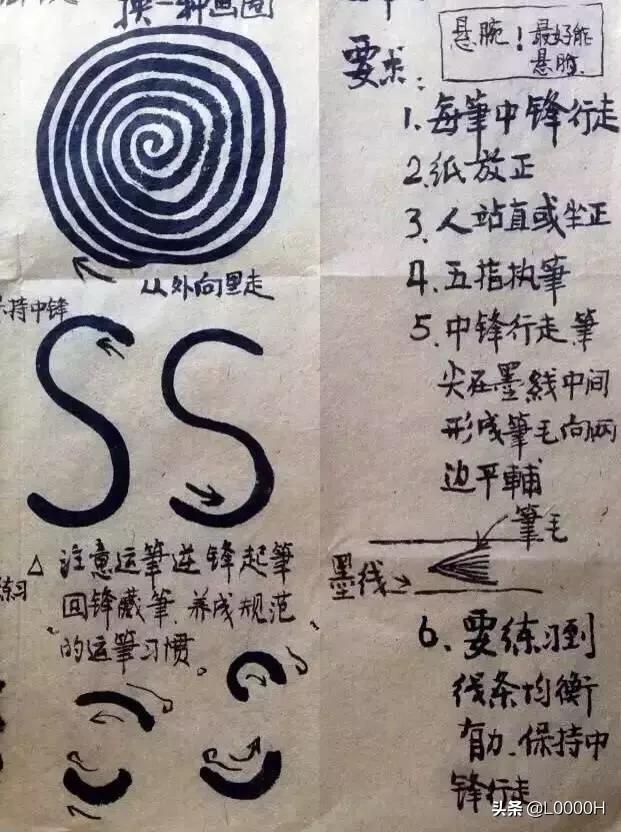 换一种画圈
从外向里走
保持中锋
△ 注意运筆逆锋起筆
回锋藏筆.养成规范
的运筆习惯。
练习
悬腕！最好能
悬肘.
要求：
1、每筆中锋行走
2.纸放正
3、人站直或坐正
4、五指执筆
5、中锋行走.筆
尖在墨线中间
形成筆毛向两
边平輔
筆毛
墨线
6、要练习到
线条均衡
有力.保持中
锋行走
头条 @L0000H